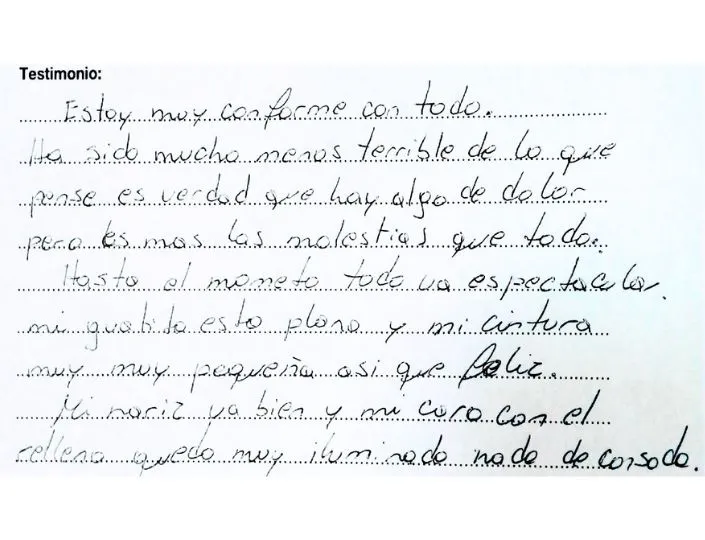 Testimonio:
Estoy muy conforme con todo.
Ha sido mucho menos terrible de lo que
pense es verdad que hay algo de dolor
pero es mas las molestias que todo.
Hasta el mometo todo va espectacular.
mi guatita esta plana y mi cintura
muy muy pequeña asi que feliz.
Mi nariz va bien y mi cara con el
relleno quedo muy iluminada nada de cansada.